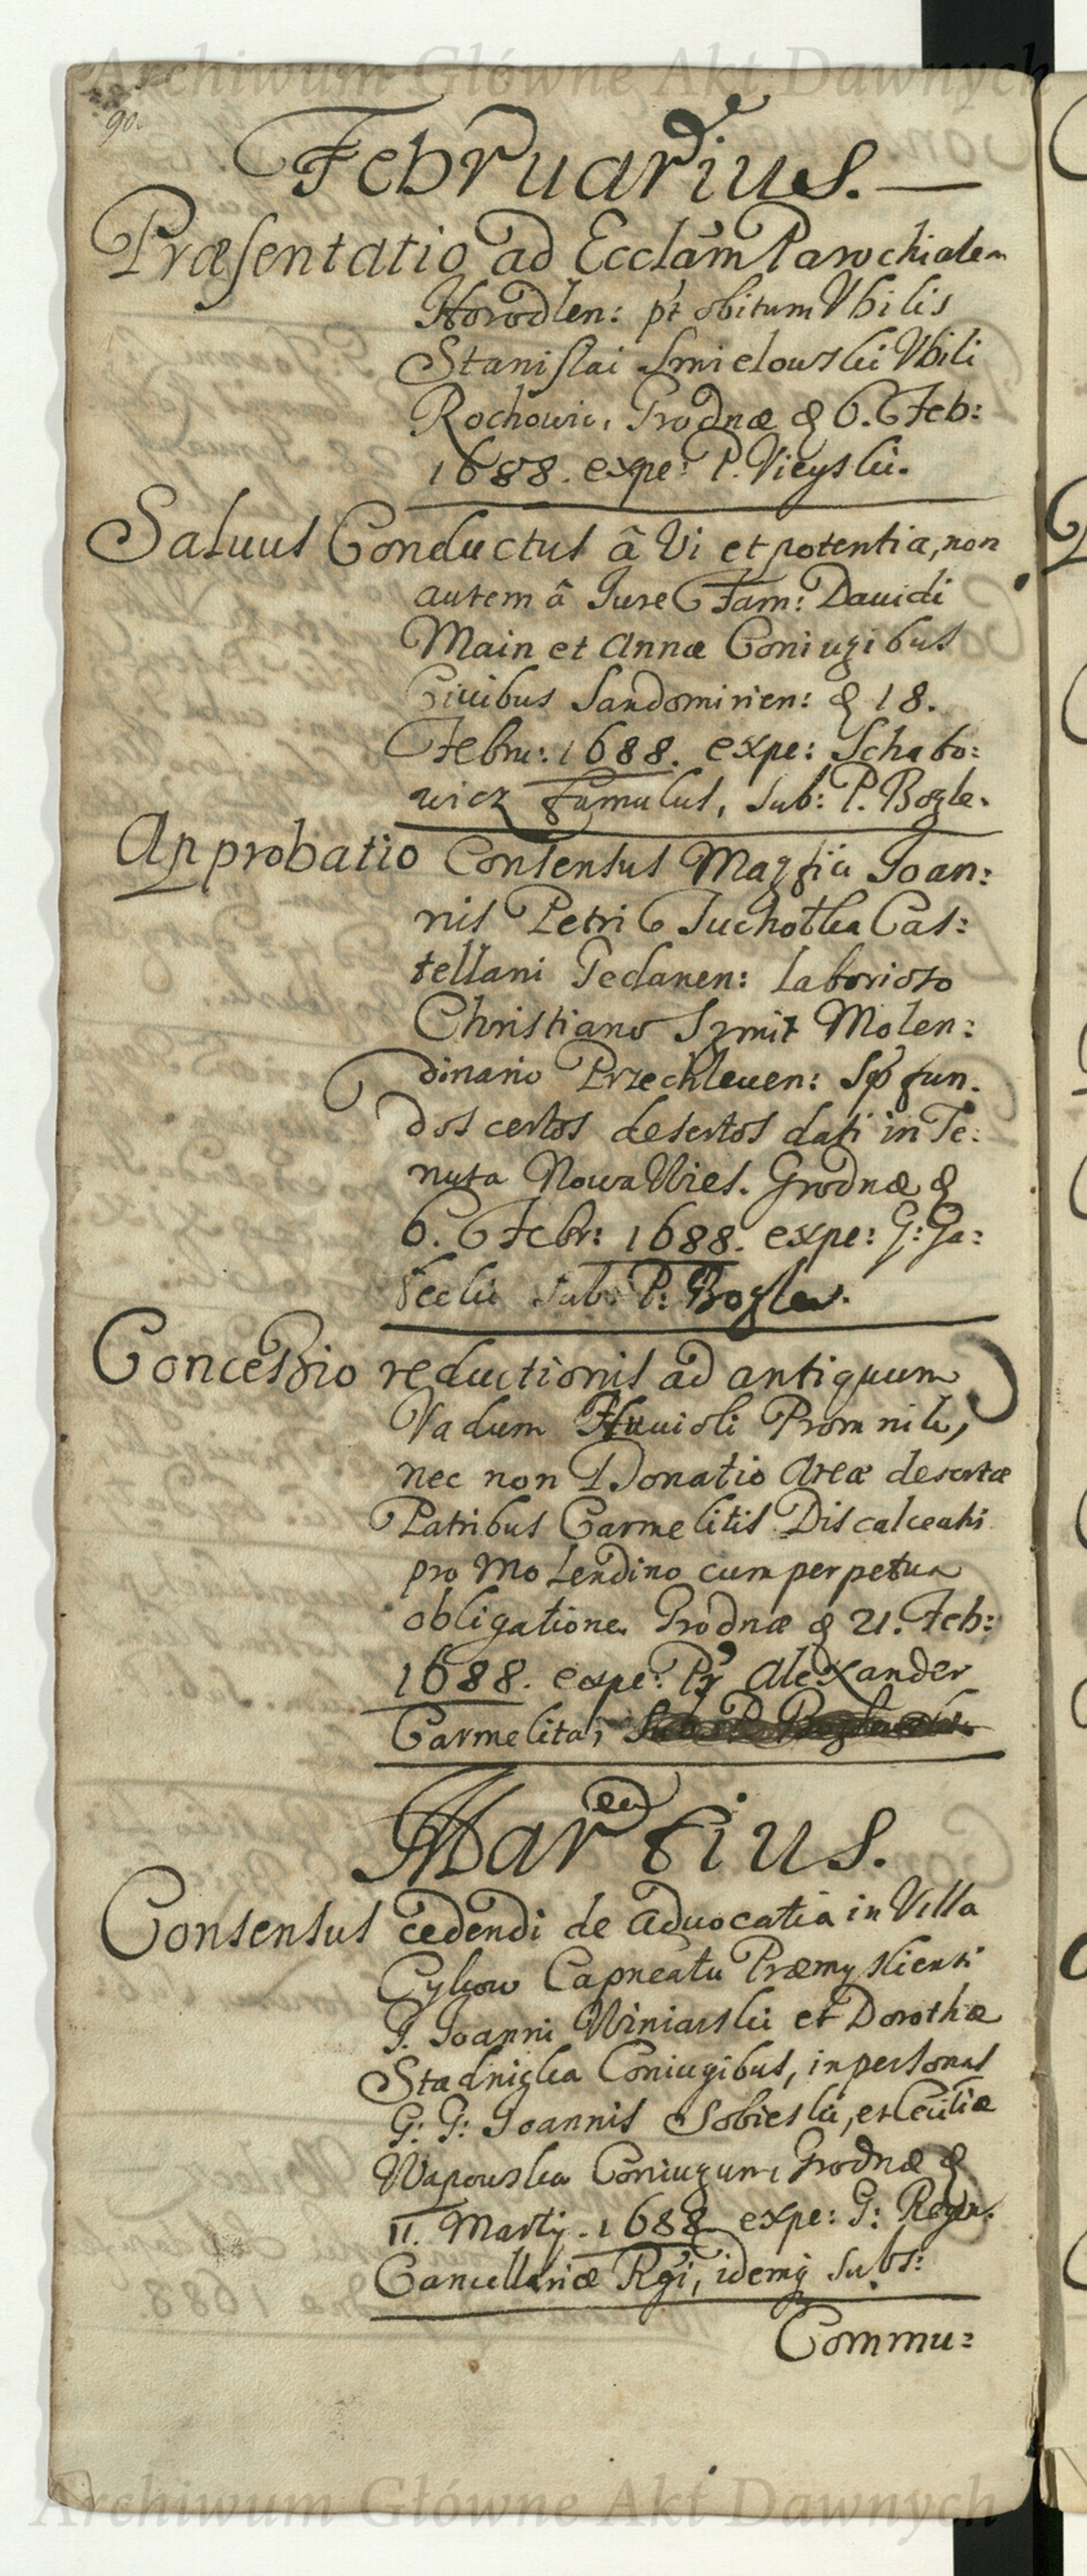 Archiwum Główne Akt Dawnych
90.
Februarius.
Præsentatio ad Ecclam Parochialem
Horodlen: pt obitum Vbilis
Stanislai Smielowski Vbili
Rochowic, Grodnæ d 6. Feb:
1688. expe: P. Vieyski.
Saluus Conductus â Vi et potentia, non
autem â Jure Fam: Dauidi
Main et Annæ Coniugibus
Ciuibus Sandomirien: d 18.
Febru: 1688. expe: Schabo:
wicz famulus, sub: P. Bogle.
Approbatio Consensus Magfici Joan:
nis Petri Tuchołka Cas:
tellani Gedanen: laborioso
Christiano Szmit Molen:
dinario Przechleuen: Sp fun.
dos certos desertos dati in Te:
nuta Nowa Wies. Grodnæ d
6. Febr: 1688. expe: G: Ga:
secki sub P: Bogler.
Concessio reductionis ad antiquum
Vadum Fluuioli Promnik,
nec non Donatio Areæ desertæ
Patribus Carmelitis Discalceatis
pro Molendino cum perpetua
obligatione. Grodnæ d 21. Feb:
1688. expe: Pr Alexander
Carmelita,
Martius.
Consensus cedendi de Aduocatia in Villa
Cykow Capneatu Præmysliensi
G. Joanni Winiarski et Dorothæ
Stadnicka Coniugibus, in personas
G: G: Joannis Sobieski, et Ceciliæ
Wapowska Coniugum, Grodnæ d
11. Martij. 1688 expe: G: Regen.
Cancellariæ Rgi, idemq subs:
Commu:
Archiwum Główne Akt Dawnych